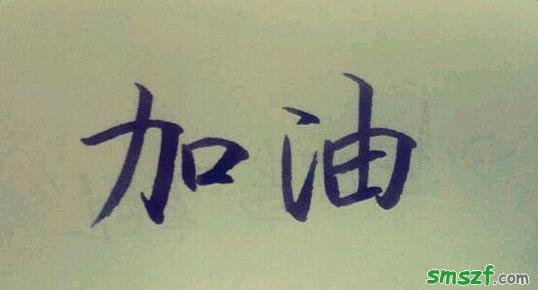 加油
smszf.com